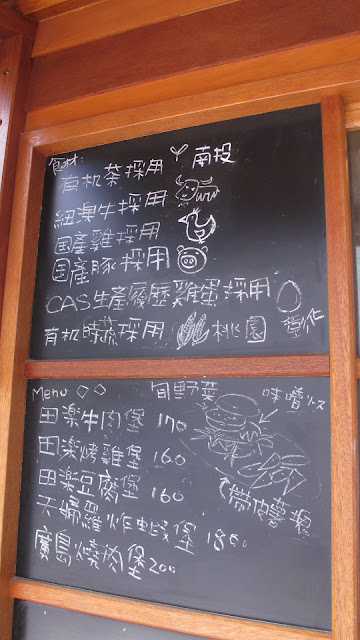 食材:
有机茶採用 南投
紐澳牛採用
国産雞採用
国産豚採用
CAS生產履歷雞蛋採用 彰化
有机時蔬採用 桃園
Menu ◇◇
旬野菜
味噌ソース
田楽牛肉堡 170
田楽烤雞堡 160
田楽豆腐堡 160
天婦羅炸蝦堡 180
廣島燒肉堡 200
帶皮薯條